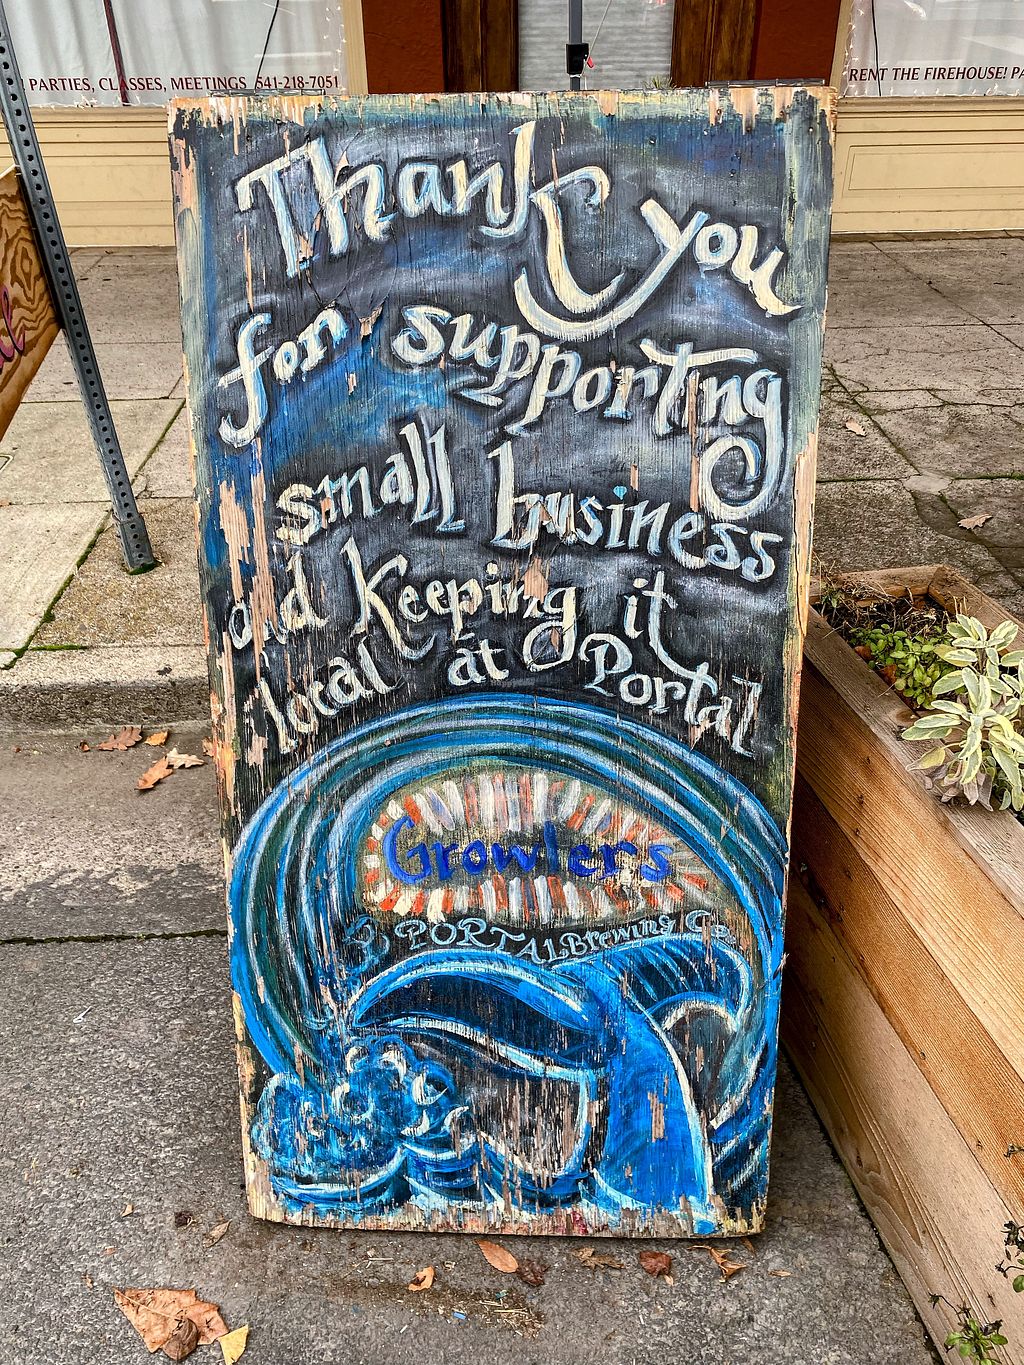 PARTIES, CLASSES, MEETINGS 541-218-7051
RENT THE FIREHOUSE! PA
Thank you
for supporting
small business
and keeping it
local at Portal
Growlers
PORTAL Brewing Co.